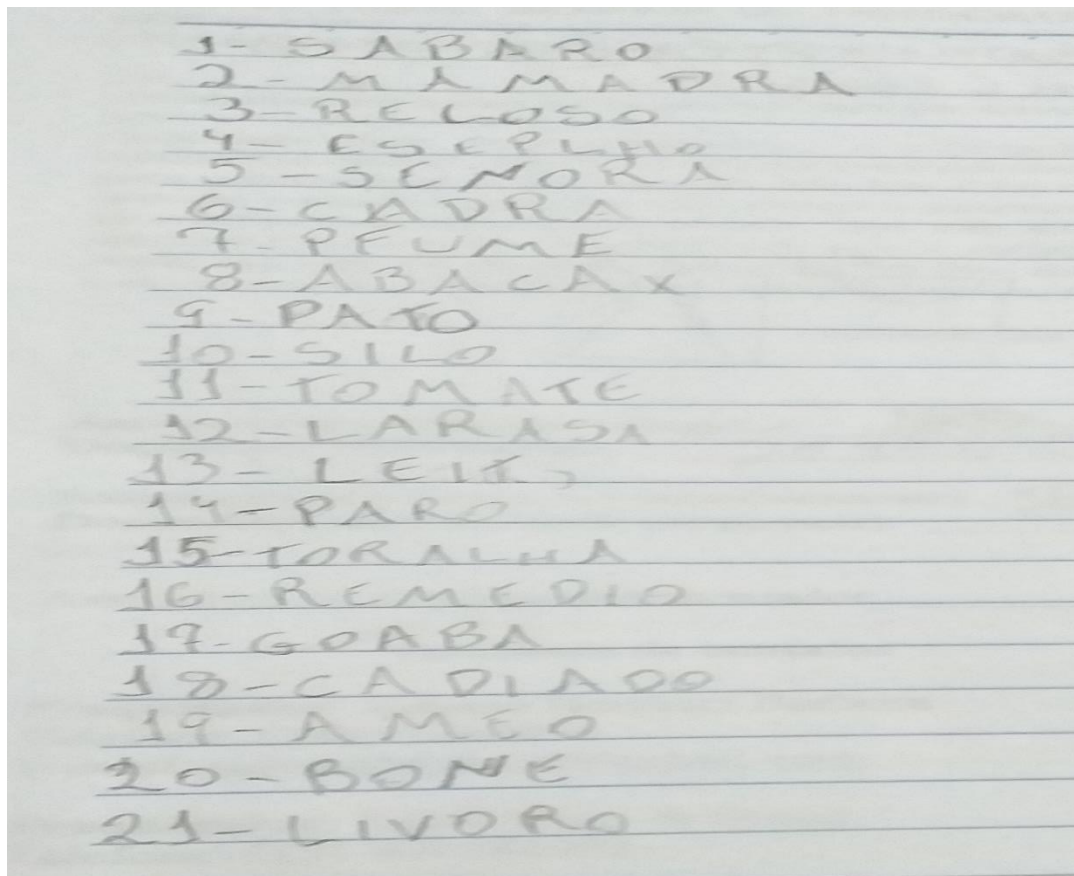 1- SABARO
2- MAMADRA
3- RELOSO
4- ESEPLHO
5 - SENORA
6- CADRA
7- PEUME
8- ABACAX
9- PATO
10- SILO
11- TOMATE
12- LARASA
13- LEIT
14- PARO
15- TORALHA
16- REMEDIO
17- GOABA
18- CADIADO
19- AMEO
20- BONE
21- LIVORO